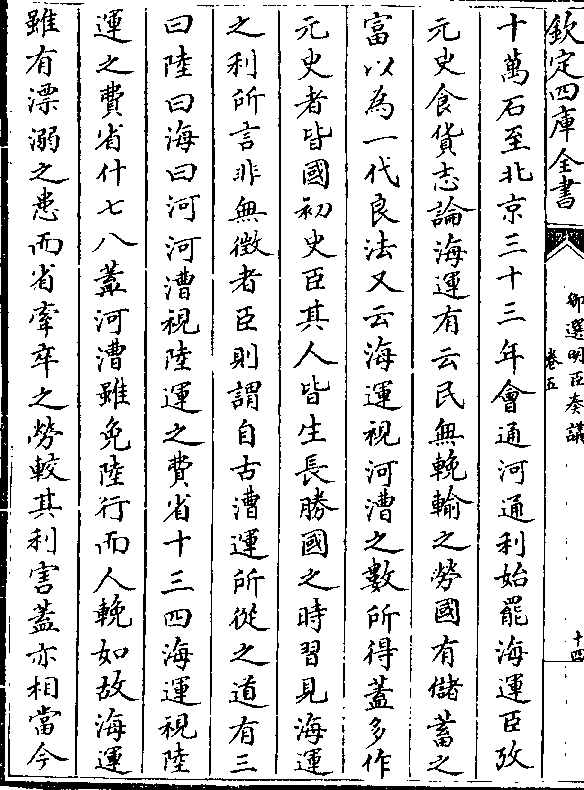 欽定四庫全書
御選明臣奏議
卷五
十四
十萬石至北京三十三年會通河通利始罷海運臣攷
元史食貨志論海運有云民無輓輸之勞國有儲蓄之
富以為一代良法又云海運視河漕之數所得蓋多作
元史者皆國初史臣其人皆生長勝國之時習見海運
之利所言非無徴者臣則謂自古漕運所從之道有三
曰陸曰海曰河河漕視陸運之費省十三四海運視陸
運之費省什七八蓋河漕雖免陸行而人輓如故海運
雖有漂溺之患而省牽卒之勞較其利害蓋亦相當今